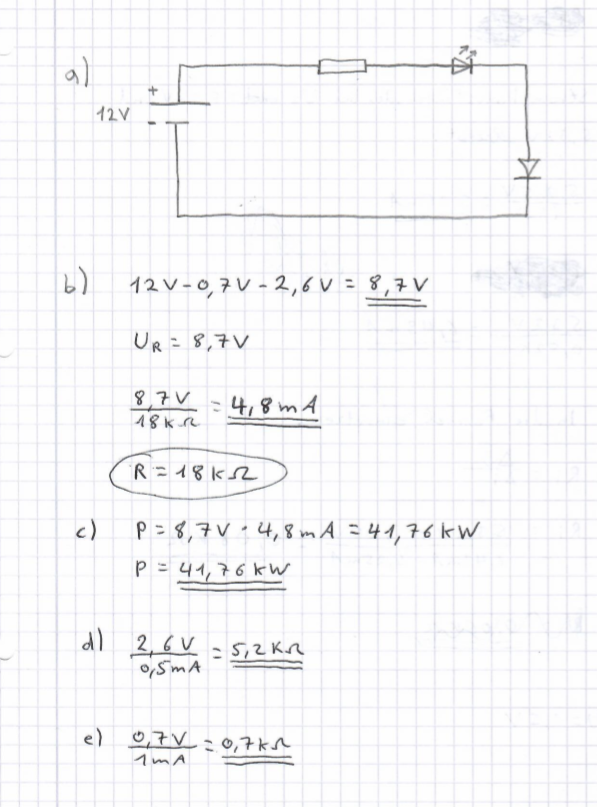 a)
+
12V
-
b) 12V - 0,7V - 2,6V = 8,7V
U_R = 8,7V
8,7V / 18kΩ = 4,8mA
R = 18kΩ
c) P = 8,7V · 4,8mA = 41,76kW
P = 41,76kW
d) 2,6V / 0,5mA = 5,2kΩ
e) 0,7V / 1mA = 0,7kΩ